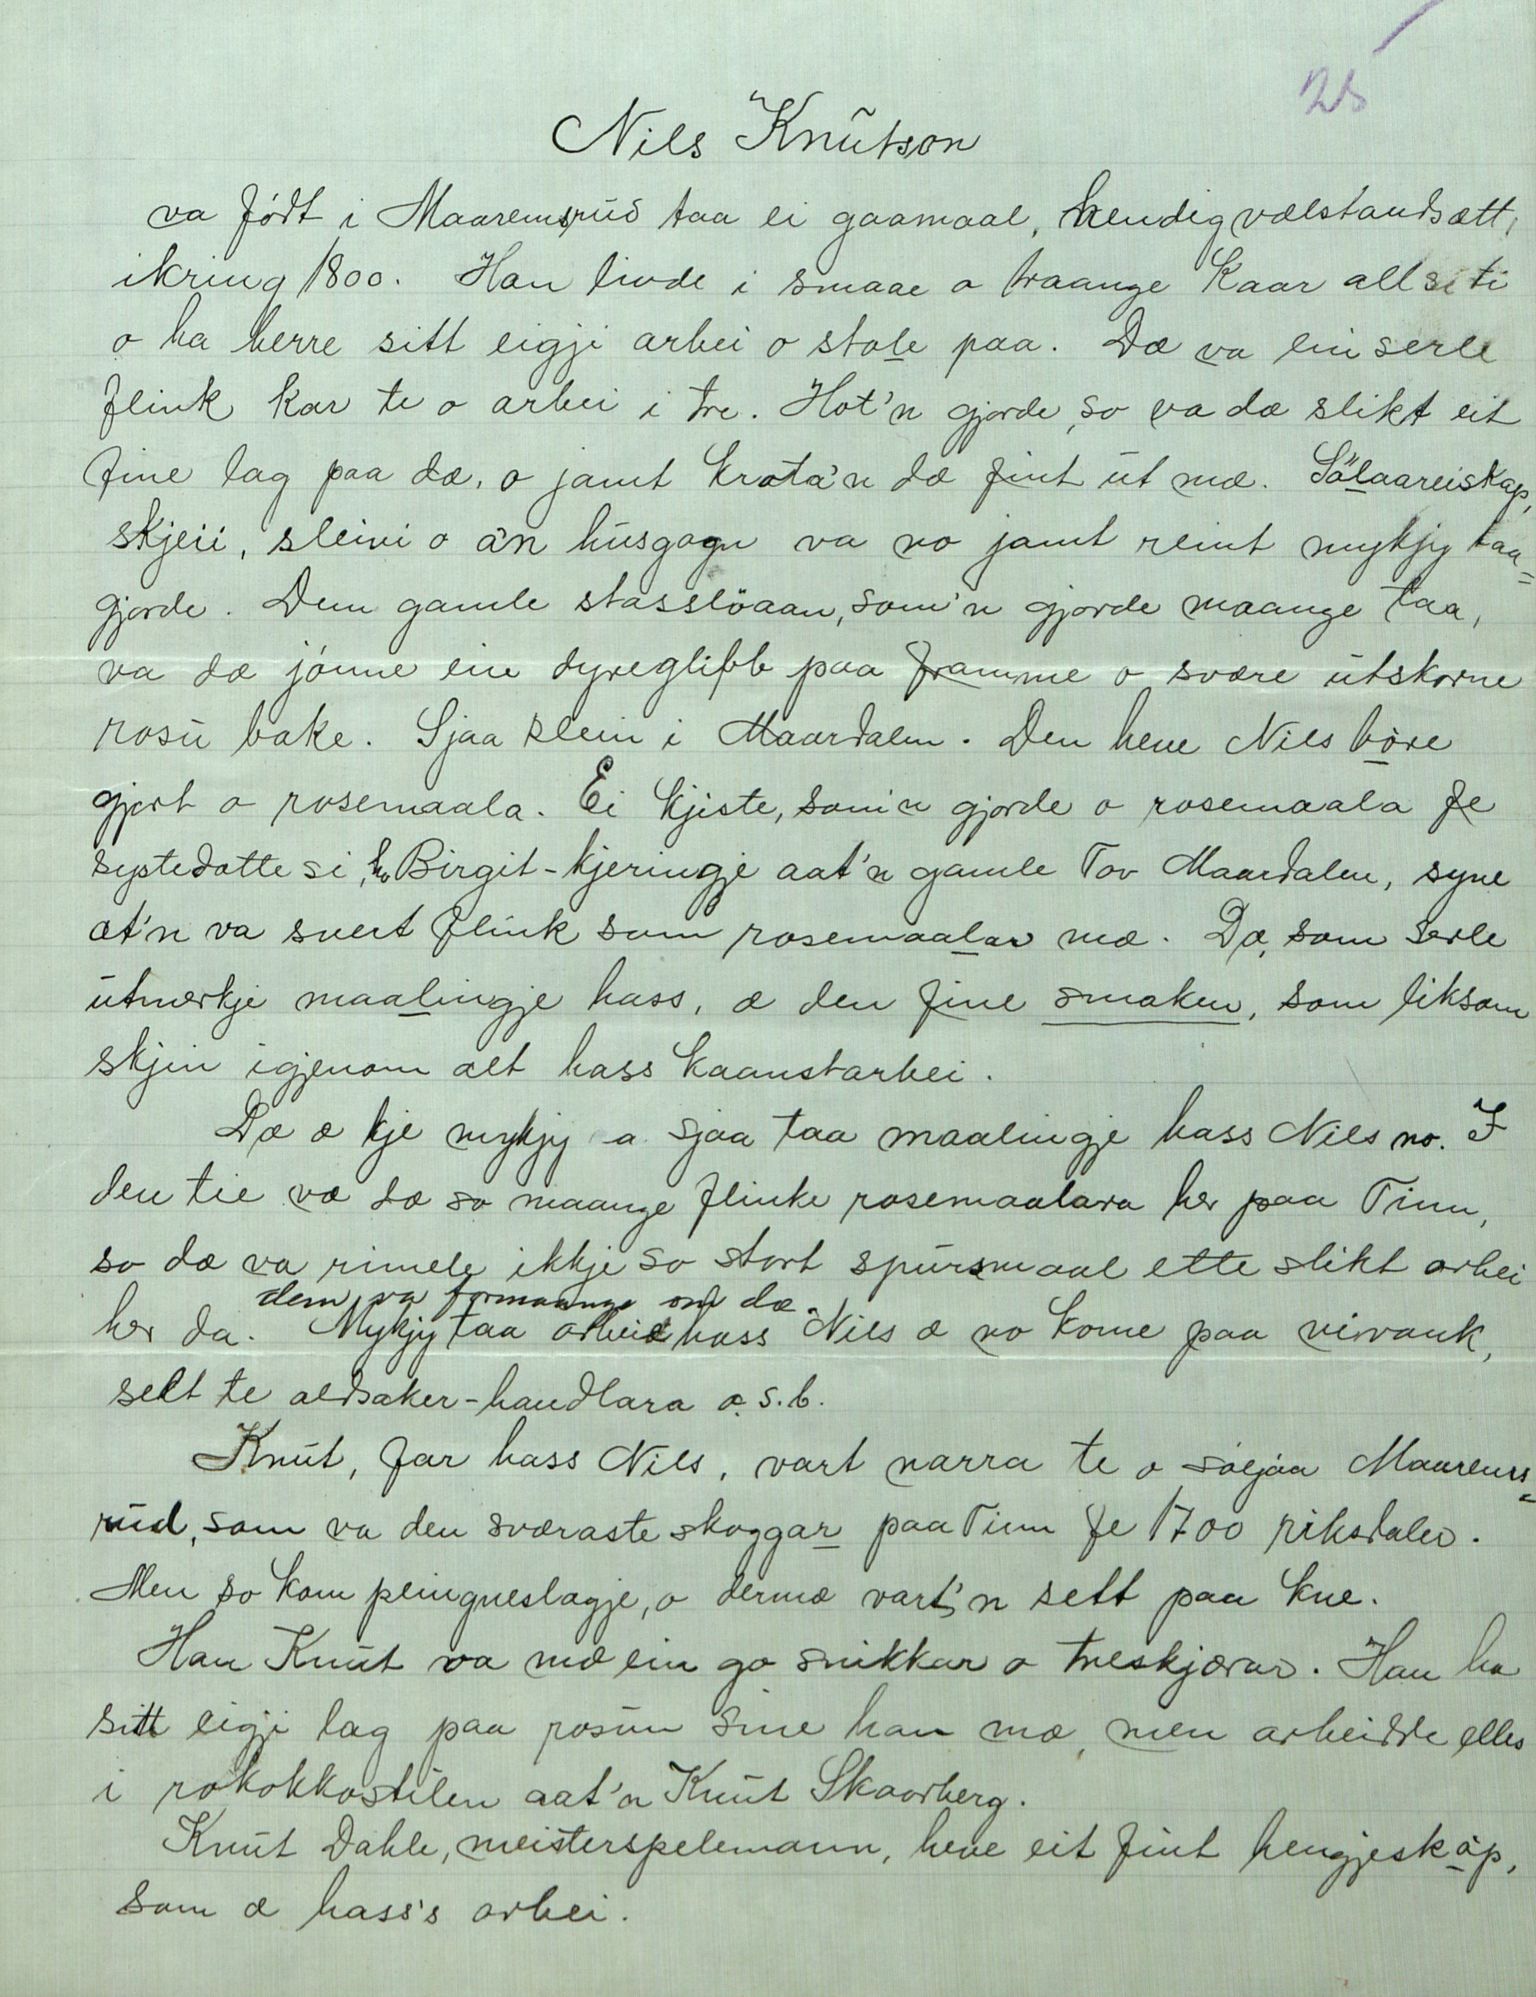 25
Nils Knutson
va født i Maaremsrud taa ei gaamaal, hendig vælstandsætt,
ikring 1800. Han livde i smaae o traange kaar allseti
o ha berre sitt eigji arbei o stole paa. Dæ va ein serle
flink kar te o arbei i tre. Hot'n gjorde, so va dæ slikt eit
fine lag paa dæ, o jamt krota'n dæ fint ut mæ. Sålaareiskap,
skjeii, sleivi o a'n husgogn va no jamt reint mykjy taa
gjorde. Dem gamle stasslöaan, som'n gjorde maange taa,
va dæ jónne ein dyreglibb paa framme o svære utskorne
rosu bake. Sjaa klein i Maardalen. Den heve Nils både
gjort o rosemaala. Ei kjiste, som'n gjorde o rosemaala fe
systedotte si, ho Birgit-kjeringje aat'n gamle Tov Maardalen, syne
at'n va svert flink som rosemaalar mæ. Dæ, som serle
utmerkje maalingje hass, æ den fine smaken, som liksom
skjin igjenom alt hass kaanstarbei.
Dæ æ kje mykjy o sjaa taa maalingje hass Nils no. I
den tie va dæ so maange flinke rosemaalara her paa Tinn,
so dæ va rimele ikkje so stort spursmaal ette slikt arbei
dem va formaange om dæ.
her da. Mykjy taa arbeie hass Nils æ no kome paa vivank,
selt te aldsaker-handlara o. s. b.
Knut, far hass Nils, vart narra te o søljaa Maarems=
rud, som va den sværaste skoggar paa Tinn fe 1700 riksdaler.
Men so kom peingueslagje, o dermæ vart'n sett paa kne.
Han Knut va mæ ein go snikkar o treskjærar. Han ha
sitt eigji lag paa rosun sine han mæ, men arbeidde elles
i rokokkostilen aat'n Knut Skaarberg.
Knut Dahle, meisterspelemann, heve eit fint hengjeskåp,
som æ hass's arbei.